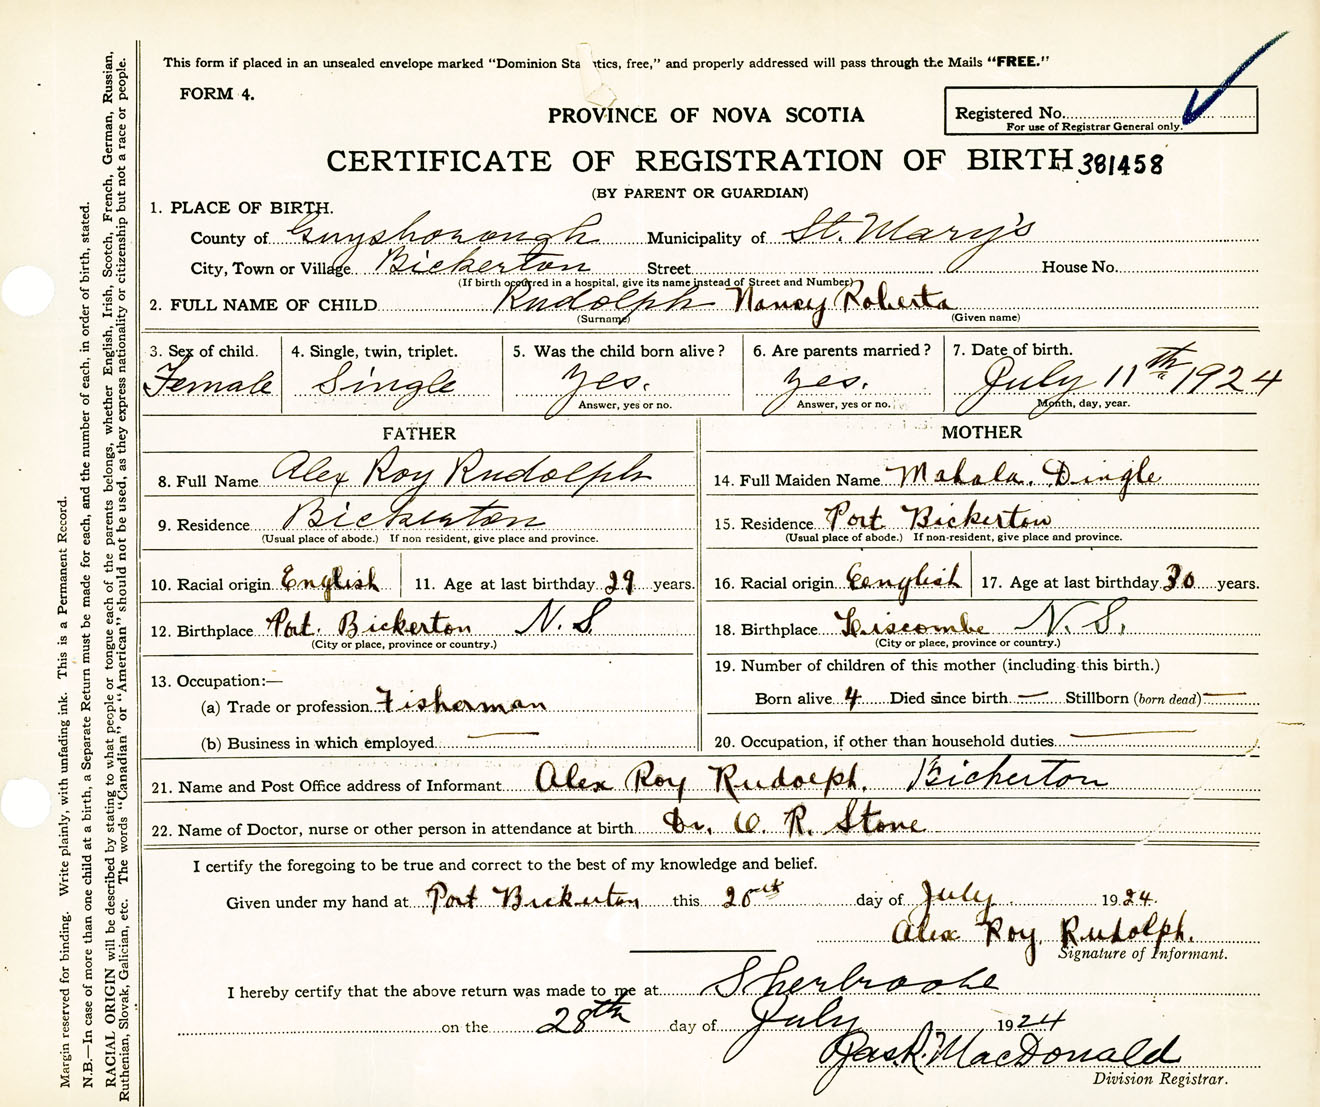 This form if placed in an unsealed envelope marked "Dominion Statistics, free," and properly addressed will pass through the Mails "FREE."
FORM 4.
PROVINCE OF NOVA SCOTIA
Registered No.
For use of Registrar General only.
CERTIFICATE OF REGISTRATION OF BIRTH 381458
(BY PARENT OR GUARDIAN)
1. PLACE OF BIRTH.
County of Guysborough Municipality of St. Mary's
City, Town or Village Bickerton Street House No.
(If birth occurred in a hospital, give its name instead of Street and Number)
2. FULL NAME OF CHILD Rudolph Nancy Roberta
(Surname) (Given name)
3. Sex of child. 4. Single, twin, triplet. 5. Was the child born alive? 6. Are parents married? 7. Date of birth.
Female Single yes. yes. July 11th 1924
Answer, yes or no. Answer, yes or no. Month, day, year.
FATHER MOTHER
8. Full Name Alex Roy Rudolph 14. Full Maiden Name Mahala Dingle
9. Residence Bickerton 15. Residence Port Bickerton
(Usual place of abode.) If non resident, give place and province. (Usual place of abode.) If non-resident, give place and province.
10. Racial origin English 11. Age at last birthday 29 years. 16. Racial origin Eenglish 17. Age at last birthday 30 years.
12. Birthplace Port Bickerton N.S. 18. Birthplace Liscombe N.S.
(City or place, province or country.) (City or place, province or country.)
19. Number of children of this mother (including this birth.)
13. Occupation:—
(a) Trade or profession Fisherman Born alive 4 Died since birth — Stillborn (born dead) —
(b) Business in which employed — 20. Occupation, if other than household duties —
21. Name and Post Office address of Informant Alex Roy Rudolph. Bickerton
22. Name of Doctor, nurse or other person in attendance at birth Dr. O. R. Stone
I certify the foregoing to be true and correct to the best of my knowledge and belief.
Given under my hand at Port Bickerton this 20th day of July 1924.
Alex Roy Rudolph.
Signature of Informant.
I hereby certify that the above return was made to me at Sherbrooke
on the 28th day of July 1924
Jas. R. MacDonald
Division Registrar.
Margin reserved for binding. Write plainly, with unfading ink. This is a Permanent Record.
N.B.—In case of more than one child at a birth, a Separate Return must be made for each, and the number of each, in order of birth, stated.
RACIAL ORIGIN will be described by stating to what people or tongue each of the parents belongs, whether English, Irish, Scotch, French, German, Russian,
Ruthenian, Slovak, Galician, etc. The words "Canadian" or "American" should not be used, as they express nationality or citizenship but not a race or people.